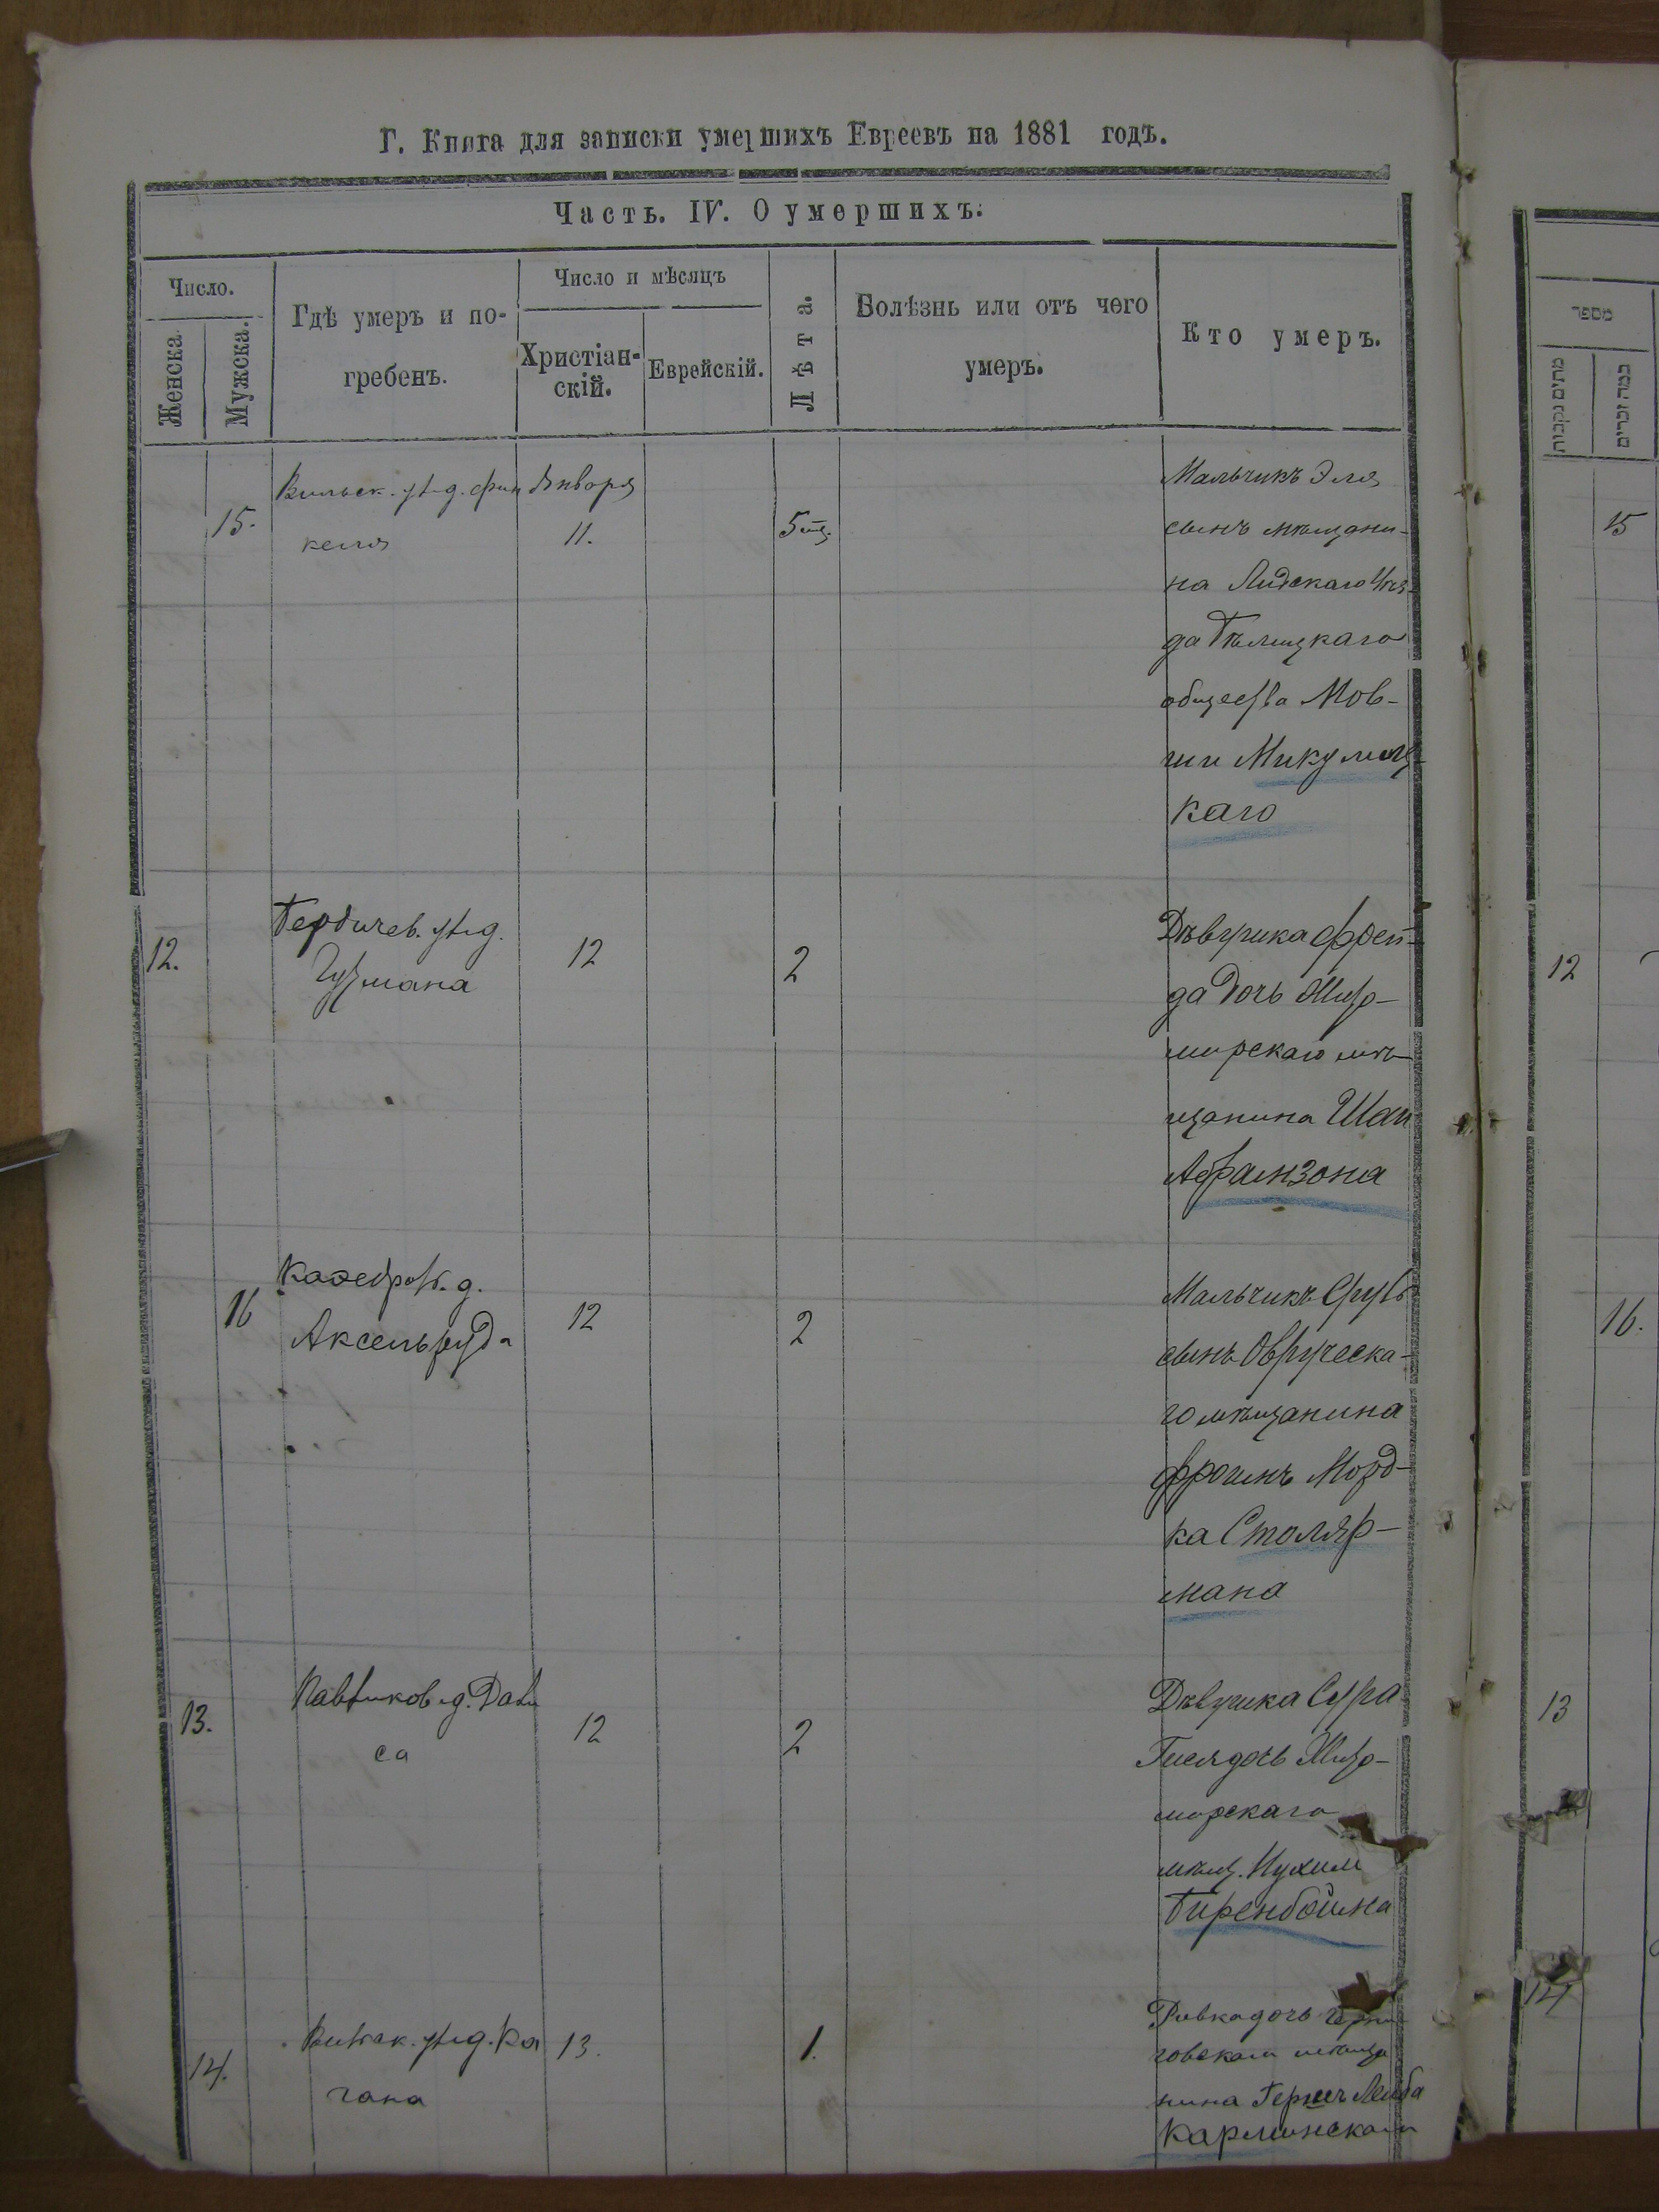 Г. Книга для записки умершихъ Евреевъ на 1881 годъ.
Часть. IV. О умершихъ.
Число.
Женска
Мужска.
Гдѣ умеръ и по-
гребенъ.
Число и мѣсяцъ
Христіан-
скій.
Еврейскій.
Лѣта.
Болѣзнь или отъ чего
умеръ.
Кто умеръ.
15.
Вильск. ул. д. Фин
келя
Января
11.
5 мц.
Мальчикъ Эля
сынъ мѣщани-
на Лидскаго Уѣз-
да Бѣлицкаго
общества Мов-
ши Микулиц-
каго
12.
Бердичев. ул. д.
Гузмана
12
2
Дѣвушка Фрей-
да дочь Жито-
мирскаго мѣ-
щанина
Абрамзона
16
Кафедрал. д.
Аксельруда
12
2
Мальчикъ Сруль
сынъ Овручска-
го мѣщанина
Фроимъ Морд-
ка Столяр-
мана
13.
д.
са
12
2
Дѣвушка Сура
Гися дочь Жито-
мирскаго
мѣщ. Нухим
Биренбойма
14.
ул. д. Ка
гана
13.
1.
Ривка дочь Черни
говскаго мѣща
нина Герш Лейба
Карлинскаго
מספר
מתים נקבות
כמה זכרים
15
12
16.
13
14